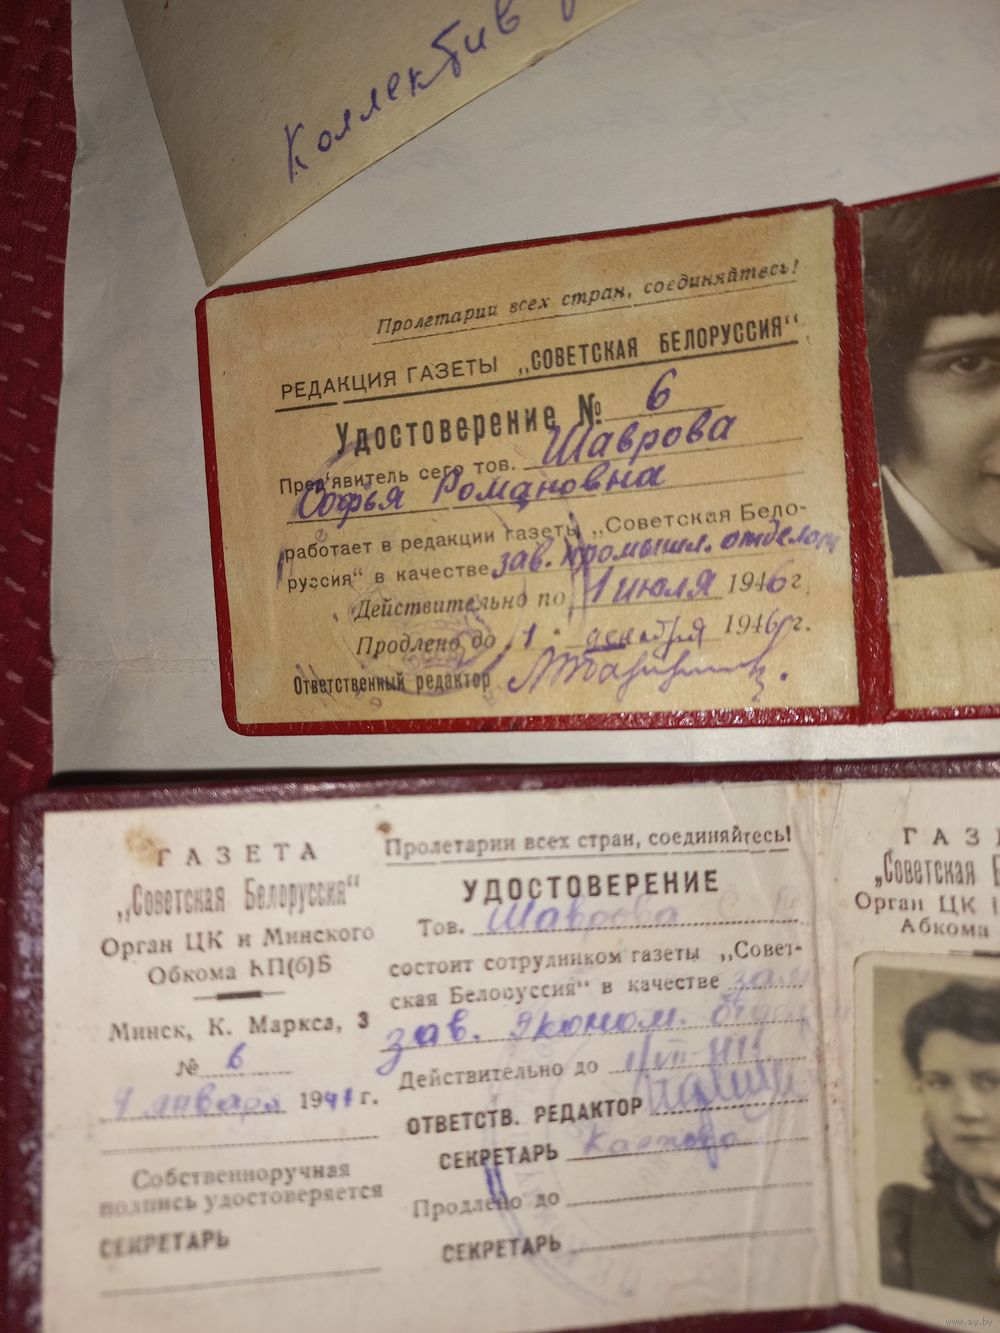 Коллектив
Пролетарии всех стран, соединяйтесь!
РЕДАКЦИЯ ГАЗЕТЫ „СОВЕТСКАЯ БЕЛОРУССИЯ“
Удостоверение № 6
Пред'явитель сего тов. Шаврова
Софья Романовна
работает в редакции газеты „Советская Бело-
руссия“ в качестве зав. промышл. отделом
Действительно по 1 июля 1946 г.
Продлено до 1 декабря 1946 г.
Ответственный редактор
ГАЗЕТА
„Советская Белоруссия“
Орган ЦК и Минского
Обкома КП(б)Б
Минск, К. Маркса, 3
№ 6
января 1941 г.
Собственноручная
подпись удостоверяется
СЕКРЕТАРЬ
Пролетарии всех стран, соединяйтесь!
УДОСТОВЕРЕНИЕ
Тов. Шаврова С.
состоит сотрудником газеты „Совет-
ская Белоруссия“ в качестве зам.
зав. эконом. отдела
Действительно до
ОТВЕТСТВ. РЕДАКТОР
СЕКРЕТАРЬ
Продлено до
СЕКРЕТАРЬ
ГАЗ
„Советская Б
Орган ЦК
Абкома
www.ay.by